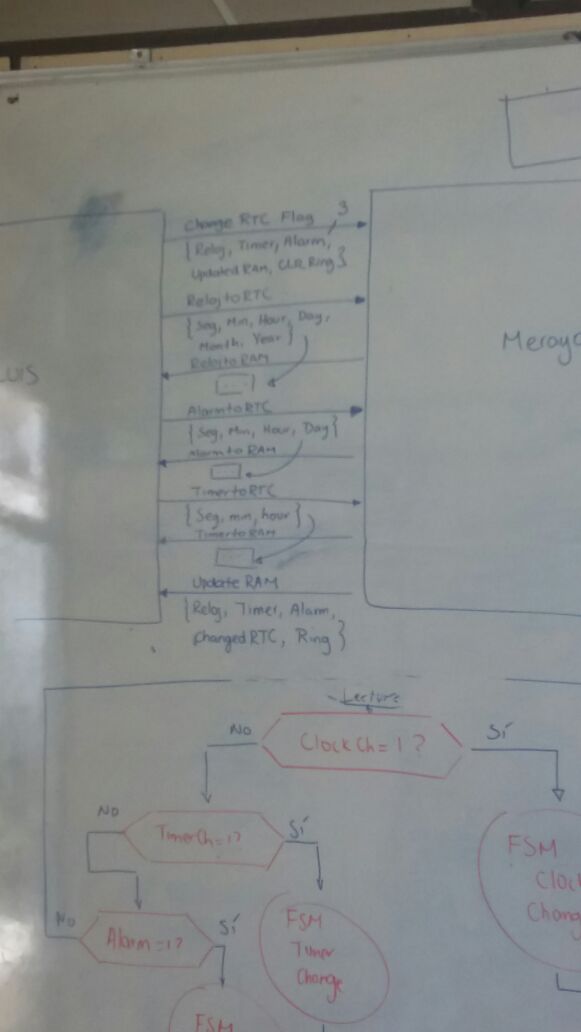 Change RTC Flag 3
{Reloj, Timer, Alarm,
Updated RAM, CLR Ring}
Reloj to RTC
{Seg, Min, Hour, Day,
Month, Year}
Reloj to RAM
...
LUIS
Alarm to RTC
{Seg, Min, Hour, Day}
Alarm to RAM
...
Timer to RTC
{Seg, min, hour}
Timer to RAM
...
Update RAM
{Reloj, Timer, Alarm,
Changed RTC, Ring}
Lecture
NO
Clock Ch = 1 ?
SÍ
NO
Timer Ch = 1?
SÍ
FSM
Clock
Change
NO
Alarm = 1?
SÍ
FSM
Timer
Change
FSM